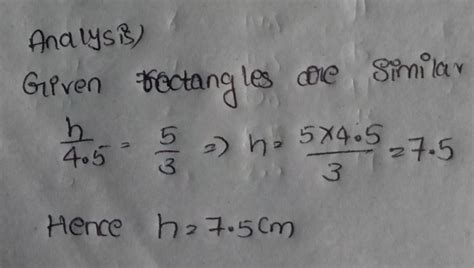 Analysis)
Given rectangles are similar
h/4.5 = 5/3 => h = 5×4.5/3 = 7.5
Hence h = 7.5cm